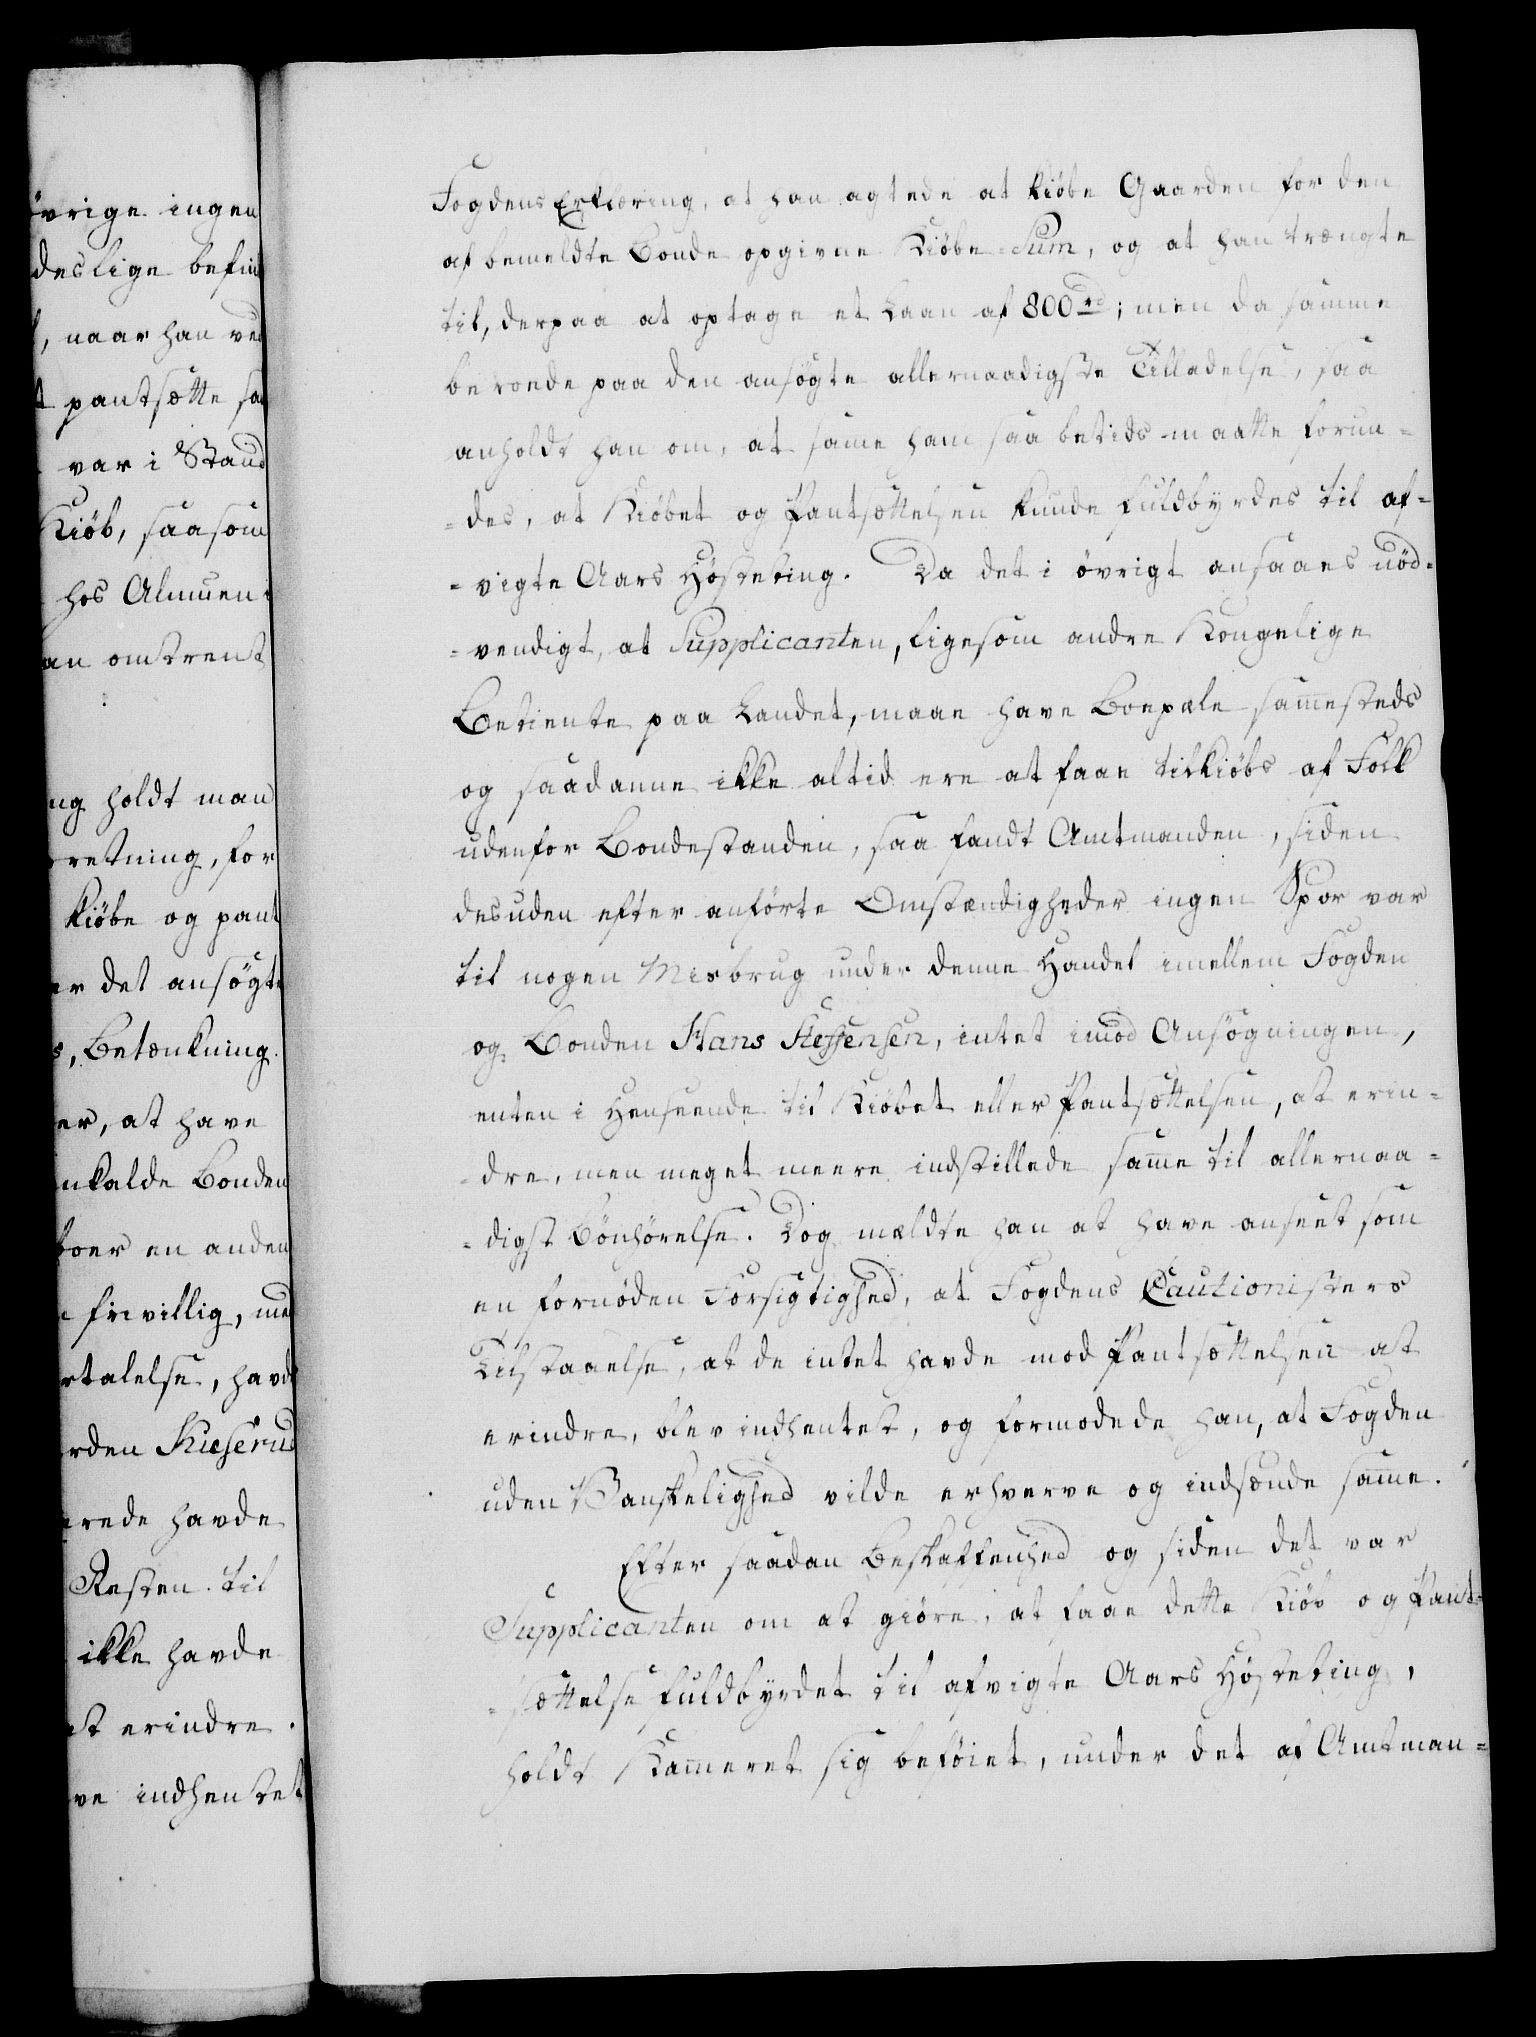 övrige ingen
deslige befin
, naar han ved
pantsætte saa
var i Stand
Kiöb, saasom
hos Almuen i
an omtrent
ng holdt man
retning, for
kiöbe og pant
er det ansögte
s, Betænkning
er, at have
nkalde Bonden
boer en anden
frivillig, men
rtalelse, havde
rden Kuserud
erede havde
Resten til
ikke havde
at erindre.
ve indhentet
Fogdens Erklæring, at han agtede at kiöbe Gaarden for den
af bemeldte Bonde opgivne Kiöbe-Sum, og at han trængte
til, derpaa at optage et Laan af 800 rd; men da samme
beroede paa den ansögte allernaadigste Tilladelse, saa
anholdt han om, at same ham saa betids maatte forun=
=des, at Kiöbet og Pantsættelsen kunde fuldbyrdes til af=
=vigte Aars Höstting. Da det i övrigt ansaaes nöd=
=vendigt, at Supplicanten, ligesom andre Kongelige
Betiente paa Landet, maae have Boepæle sammesteds
og saadanne ikke altid ere at faae tilkiöbs af Folk
udenfor Bondestanden, saa fandt Amtmanden, siden
desuden efter anförte Omstændigheder ingen Spor var
til nogen Misbrug under denne Handel imellem Fogden
og Bonden Hans Steffensen, intet imod Ansögningen,
enten i Henseende til Kiöbet eller Pantsættelsen, at erin=
=dre, men meget meere indstillede same til allernaa=
=digst Bönhörelse. Dog meldte han at have anseet som
en fornöden Forsigtighed, at Fogdens Cautionisters
Tilstaaelse, at de intet havde mod Pantsættelsen at
erindre, blev indhentet, og formodede han, at Fogden
uden Vanskelighed vilde erhverve og indsende same.
Efter saadan Beskaffenhed og siden det var
Supplicanten om at giöre, at faae dette Kiöb og Pant=
=sættelse fuldbyrdet til afvigte Aars Höstting,
holdt Kammeret sig beföiet, under det af Amtman=